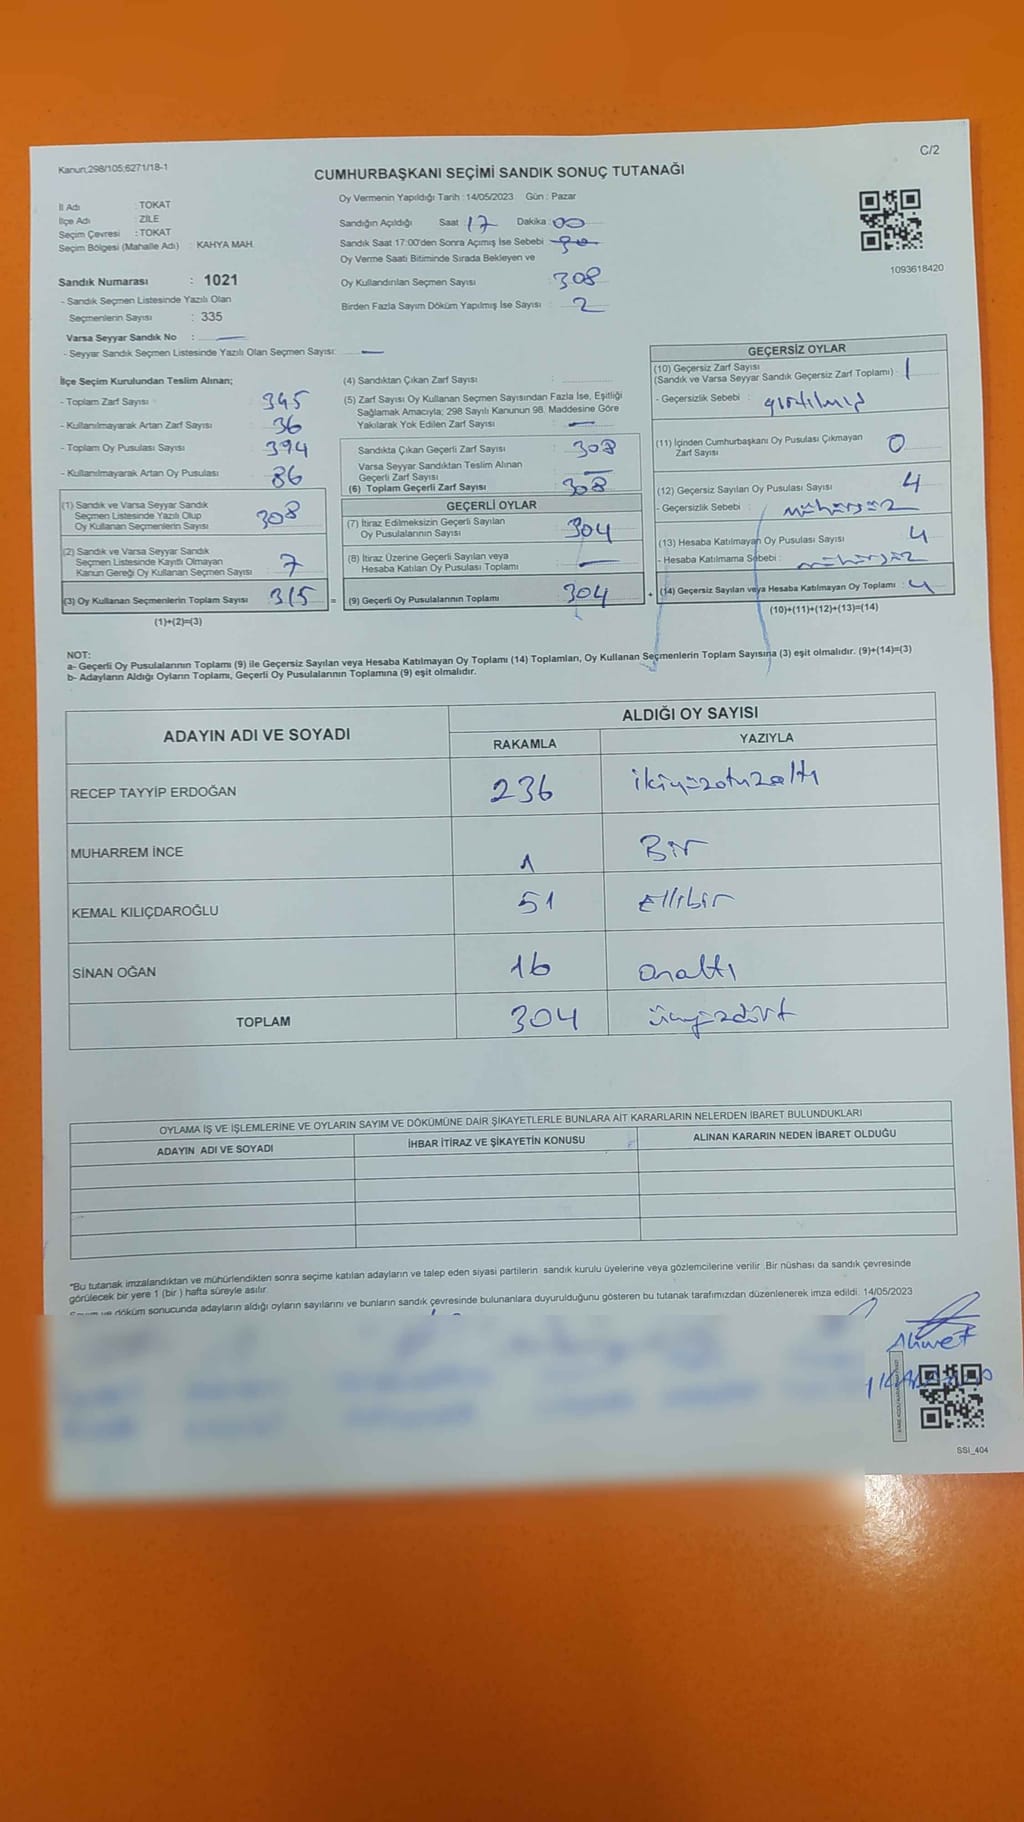 Kanun;298/105;6271/18-1
C/2
CUMHURBAŞKANI SEÇİMİ SANDIK SONUÇ TUTANAĞI
İl Adı : TOKAT
İlçe Adı : ZİLE
Seçim Çevresi : TOKAT
Seçim Bölgesi (Mahalle Adı) : KAHYA MAH.
Sandık Numarası : 1021
- Sandık Seçmen Listesinde Yazılı Olan
Seçmenlerin Sayısı : 335
Varsa Seyyar Sandık No : —
- Seyyar Sandık Seçmen Listesinde Yazılı Olan Seçmen Sayısı: —
Oy Vermenin Yapıldığı Tarih : 14/05/2023 Gün : Pazar
Sandığın Açıldığı Saat 17 Dakika : 00
Sandık Saat 17:00'den Sonra Açımış İse Sebebi
Oy Verme Saati Bitiminde Sırada Bekleyen ve
Oy Kullandırılan Seçmen Sayısı : 308
Birden Fazla Sayım Döküm Yapılmış İse Sayısı : 2
1093618420
İlçe Seçim Kurulundan Teslim Alınan;
- Toplam Zarf Sayısı : 345
- Kullanılmayarak Artan Zarf Sayısı : 36
- Toplam Oy Pusulası Sayısı : 394
- Kullanılmayarak Artan Oy Pusulası : 86
(1) Sandık ve Varsa Seyyar Sandık
Seçmen Listesinde Yazılı Olup
Oy Kullanan Seçmenlerin Sayısı : 308
(2) Sandık ve Varsa Seyyar Sandık
Seçmen Listesinde Kayıtlı Olmayan
Kanun Gereği Oy Kullanan Seçmen Sayısı : 7
(3) Oy Kullanan Seçmenlerin Toplam Sayısı : 315 =
(1)+(2)=(3)
(4) Sandıktan Çıkan Zarf Sayısı :
(5) Zarf Sayısı Oy Kullanan Seçmen Sayısından Fazla İse, Eşitliği
Sağlamak Amacıyla; 298 Sayılı Kanunun 98. Maddesine Göre
Yakılarak Yok Edilen Zarf Sayısı : —
Sandıkta Çıkan Geçerli Zarf Sayısı : 308
Varsa Seyyar Sandıktan Teslim Alınan
Geçerli Zarf Sayısı : —
(6) Toplam Geçerli Zarf Sayısı : 308
GEÇERLİ OYLAR
(7) İtiraz Edilmeksizin Geçerli Sayılan
Oy Pusulalarının Sayısı : 304
(8) İtiraz Üzerine Geçerli Sayılan veya
Hesaba Katılan Oy Pusulası Toplamı : —
(9) Geçerli Oy Pusulalarının Toplamı : 304 +
GEÇERSİZ OYLAR
(10) Geçersiz Zarf Sayısı
(Sandık ve Varsa Seyyar Sandık Geçersiz Zarf Toplamı) : 1
- Geçersizlik Sebebi : yırtılmış
(11) İçinden Cumhurbaşkanı Oy Pusulası Çıkmayan
Zarf Sayısı 0
(12) Geçersiz Sayılan Oy Pusulası Sayısı 4
- Geçersizlik Sebebi : mühürsüz
(13) Hesaba Katılmayan Oy Pusulası Sayısı 4
- Hesaba Katılmama Sebebi : mühürsüz
(14) Geçersiz Sayılan veya Hesaba Katılmayan Oy Toplamı : 4
(10)+(11)+(12)+(13)=(14)
NOT:
a- Geçerli Oy Pusulalarının Toplamı (9) ile Geçersiz Sayılan veya Hesaba Katılmayan Oy Toplamı (14) Toplamları, Oy Kullanan Seçmenlerin Toplam Sayısına (3) eşit olmalıdır. (9)+(14)=(3)
b- Adayların Aldığı Oyların Toplamı, Geçerli Oy Pusulalarının Toplamına (9) eşit olmalıdır.
ADAYIN ADI VE SOYADI ALDIĞI OY SAYISI
RAKAMLA YAZIYLA
RECEP TAYYİP ERDOĞAN 236 ikiyüzotuzaltı
MUHARREM İNCE 1 Bir
KEMAL KILIÇDAROĞLU 51 Ellibir
SİNAN OĞAN 16 onaltı
TOPLAM 304 üçyüzdört
OYLAMA İŞ VE İŞLEMLERİNE VE OYLARIN SAYIM VE DÖKÜMÜNE DAİR ŞİKAYETLERLE BUNLARA AİT KARARLARIN NELERDEN İBARET BULUNDUKLARI
ADAYIN ADI VE SOYADI İHBAR İTİRAZ VE ŞİKAYETİN KONUSU ALINAN KARARIN NEDEN İBARET OLDUĞU
*Bu tutanak imzalandıktan ve mühürlendikten sonra seçime katılan adayların ve talep eden siyasi partilerin sandık kurulu üyelerine veya gözlemcilerine verilir. Bir nüshası da sandık çevresinde
görülecek bir yere 1 (bir ) hafta süreyle asılır.
Sayım ve döküm sonucunda adayların aldığı oyların sayılarını ve bunların sandık çevresinde bulunanlara duyurulduğunu gösteren bu tutanak tarafımızdan düzenlenerek imza edildi. 14/05/2023
Ahmet
SSI_404